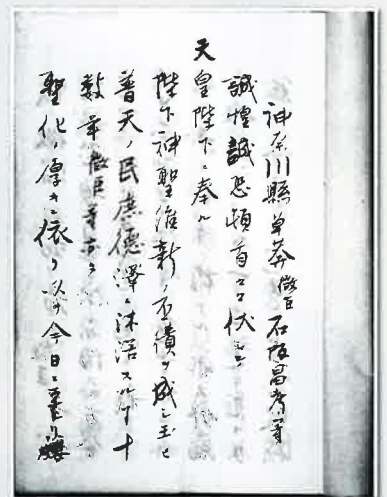 神奈川縣草莽微臣石阪昌孝等
誠惶誠恐頓首々々伏テ
天
皇陛下ニ奉ル
陛下神聖維新ノ丕績ヲ成シ玉ヒ
普天ノ民庶德澤ニ沐浴スル
十
数年微臣等亦タ
聖化ノ厚キニ依リ以テ今日ニ至リ